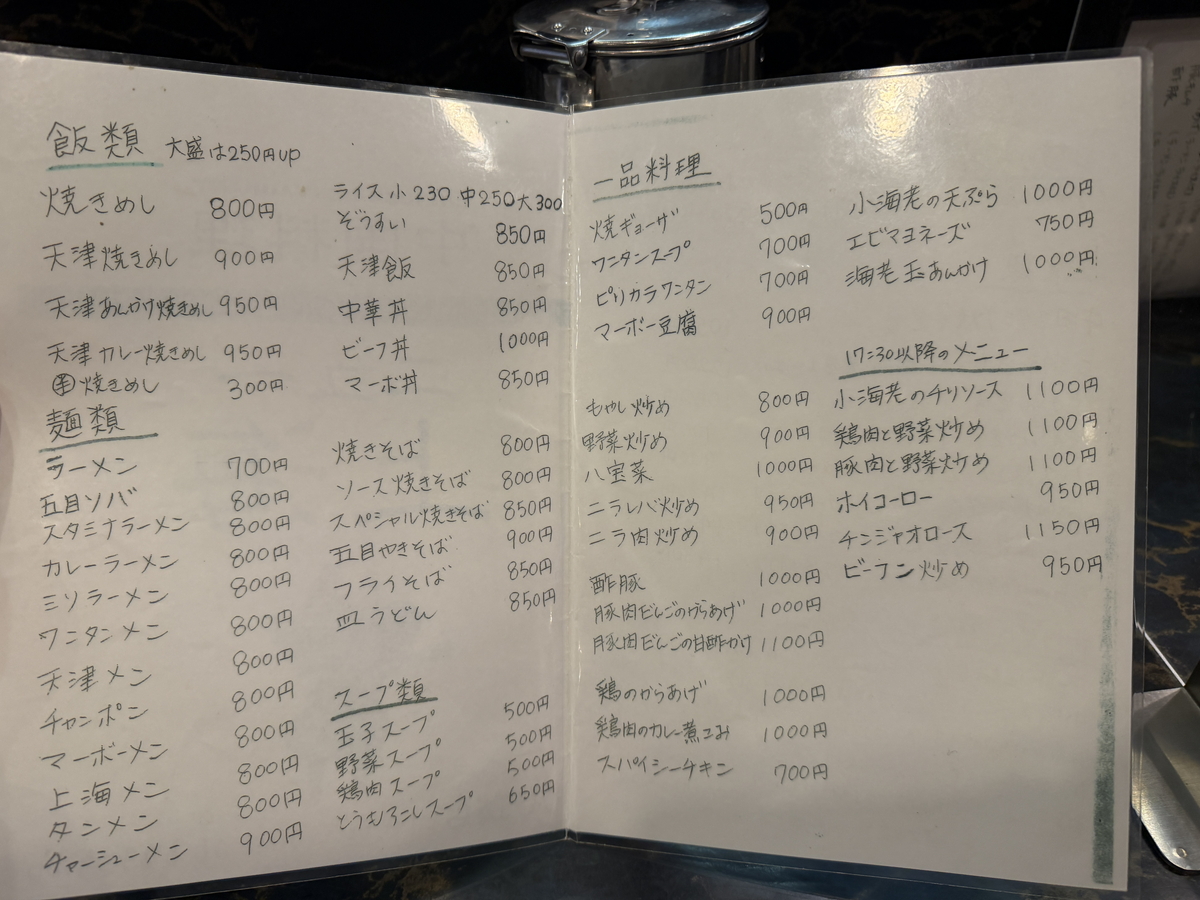 飯類 大盛は250円up
焼きめし 800円
天津焼きめし 900円
天津あんかけ焼きめし 950円
天津カレー焼きめし 950円
焼きめし 300円
ライス小230 中250大300
ぞうすい 850円
天津飯 850円
中華丼 850円
ビーフ丼 1000円
マーボ丼 850円
麺類
ラーメン 700円
五目ソバ 800円
スタミナラーメン 800円
カレーラーメン 800円
ミソラーメン 800円
ワンタンメン 800円
天津メン 800円
チャンポン 800円
マーボーメン 800円
上海メン 800円
タンメン 800円
チャーシューメン 900円
焼きそば 800円
ソース焼きそば 800円
スペシャル焼きそば 850円
五目やきそば 900円
フライそば 850円
皿うどん 850円
スープ類
玉子スープ 500円
野菜スープ 500円
鶏肉スープ 500円
とうもろこしスープ 650円
一品料理
焼ギョーザ 500円
ワンタンスープ 700円
ピリカラワンタン 700円
マーボー豆腐 900円
もやし炒め 800円
野菜炒め 900円
八宝菜 1000円
ニラレバ炒め 950円
ニラ肉炒め 900円
酢豚 1000円
豚肉だんごのからあげ 1000円
豚肉だんごの甘酢かけ 1100円
鶏のからあげ 1000円
鶏肉のカレー煮こみ 1000円
スパイシーチキン 700円
小海老の天ぷら 1000円
エビマヨネーズ 750円
海老玉あんかけ 1000円
17:30以降のメニュー
小海老のチリソース 1100円
鶏肉と野菜炒め 1100円
豚肉と野菜炒め 1100円
ホイコーロー 950円
チンジャオロース 1150円
ビーフン炒め 950円